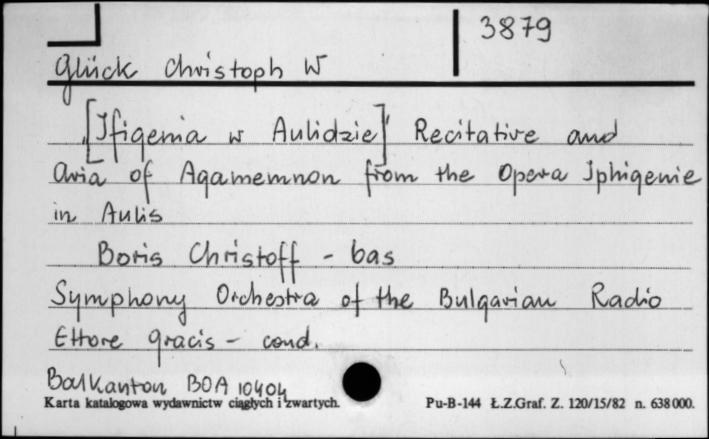 3879
Glück Christoph W
"[Ifigenia w Aulidzie]" Recitative and
Aria of Agamemnon from the Opera Iphigenie
in Aulis
Boris Christoff - bas
Symphony Orchestra of the Bulgarian Radio
Ettore Gracis - cond.
Balkanton BOA 10404
Karta katalogowa wydawnictw ciągłych i zwartych. Pu-B-144 Ł.Z.Graf. Z. 120/15/82 n. 638000.